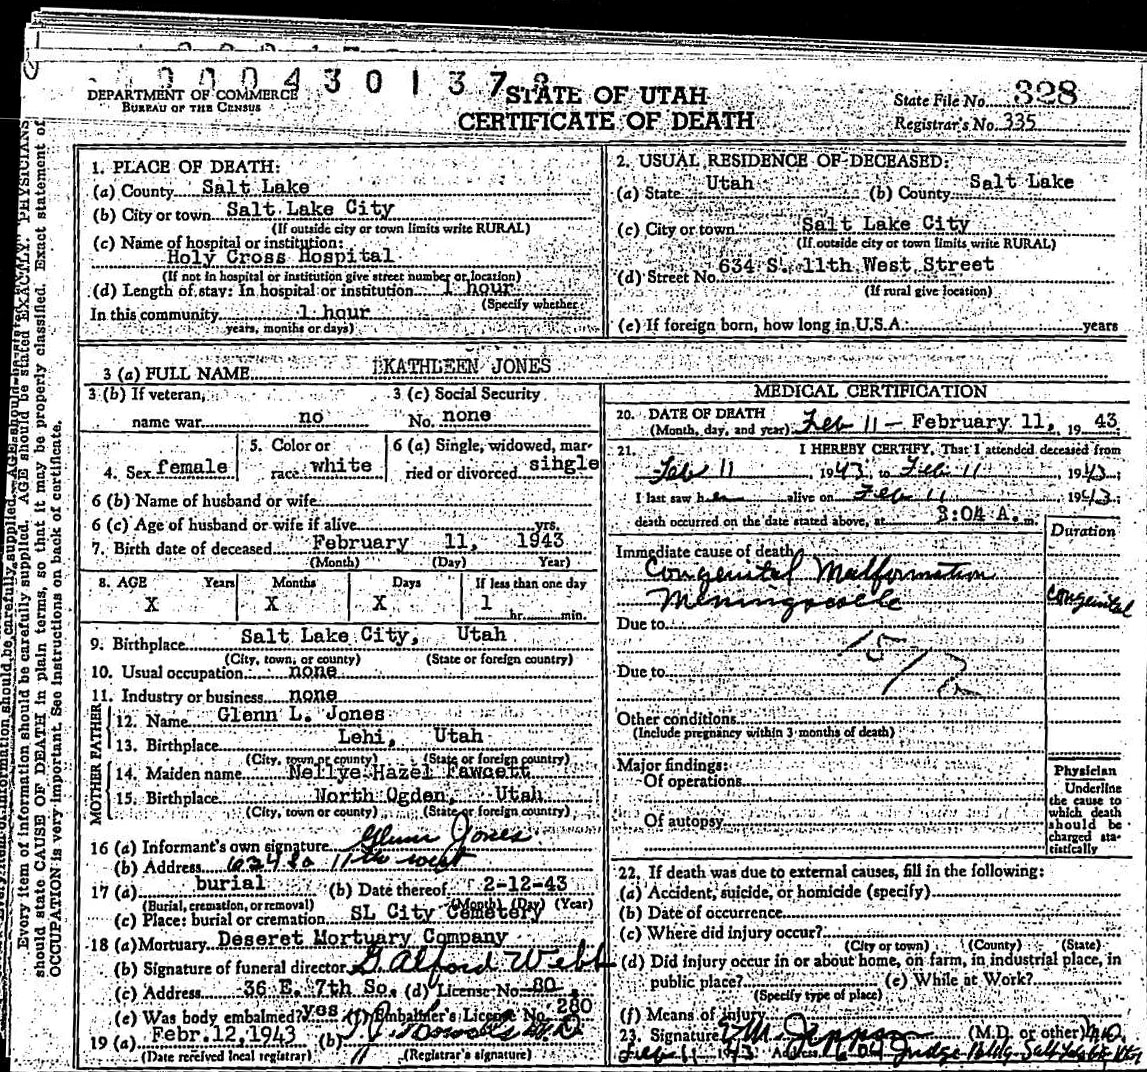 0004301372
DEPARTMENT OF COMMERCE
BUREAU OF THE CENSUS
STATE OF UTAH
CERTIFICATE OF DEATH
State File No. 328
Registrar's No. 335
1. PLACE OF DEATH:
(a) County Salt Lake
(b) City or town Salt Lake City
(If outside city or town limits write RURAL)
(c) Name of hospital or institution:
Holy Cross Hospital
(If not in hospital or institution give street number or location)
(d) Length of stay: In hospital or institution 1 hour
(Specify whether
In this community 1 hour
years, months or days)
2. USUAL RESIDENCE OF DECEASED:
(a) State Utah (b) County Salt Lake
(c) City or town Salt Lake City
(If outside city or town limits write RURAL)
(d) Street No. 634 S. 11th West Street
(If rural give location)
(e) If foreign born, how long in U.S.A.: years
3 (a) FULL NAME KATHLEEN JONES
3 (b) If veteran, 3 (c) Social Security
name war no No. none
4. Sex female 5. Color or race white 6 (a) Single, widowed, married or divorced single
6 (b) Name of husband or wife
6 (c) Age of husband or wife if alive yrs.
7. Birth date of deceased February 11, 1943
(Month) (Day) Year)
8. AGE Years Months Days If less than one day
X X X 1 hr. min.
9. Birthplace Salt Lake City, Utah
(City, town, or county) (State or foreign country)
10. Usual occupation none
11. Industry or business none
FATHER
12. Name Glenn L. Jones
13. Birthplace Lehi, Utah
(City, town or county) (State or foreign country)
MOTHER
14. Maiden name Nellye Hazel Fawcett
15. Birthplace North Ogden, Utah
(City, town or county) (State or foreign country)
16 (a) Informant's own signature Glenn Jones
(b) Address 634 So 11th west
17 (a) burial (b) Date thereof 2-12-43
(Burial, cremation, or removal) (Month) (Day) (Year)
(c) Place: burial or cremation SL City Cemetery
18 (a) Mortuary Deseret Mortuary Company
(b) Signature of funeral director G. Alford Webb
(c) Address 36 E. 7th So. (d) License No. 80
(e) Was body embalmed? yes (f) Embalmer's License No. 280
19 (a) Febr. 12, 1943 (b)
(Date received local registrar) (Registrar's signature)
MEDICAL CERTIFICATION
20. DATE OF DEATH
(Month, day, and year) Feb 11 - February 11, 19 43
21. I HEREBY CERTIFY, That I attended deceased from
Feb 11 1943 to Feb 11, 1943.
I last saw her alive on Feb 11, 1943.
death occurred on the date stated above, at 3:04 A. m.
Duration
Immediate cause of death
Congenital Malformation
Meningocele Congenital
Due to
Due to
Other conditions
(Include pregnancy within 3 months of death)
Major findings:
Of operations
Of autopsy
Physician
Underline
the cause to
which death
should be
charged sta-
tistically
22. If death was due to external causes, fill in the following:
(a) Accident, suicide, or homicide (specify)
(b) Date of occurrence
(c) Where did injury occur?
(City or town) (County) (State)
(d) Did injury occur in or about home, on farm, in industrial place, in
public place? (e) While at Work?
(Specify type of place)
(f) Means of injury
23. Signature (M.D. or other) M.D.
Feb 11 1943 Address Judge Bldg.
Every item of information should be carefully supplied. AGE should be stated EXACTLY. PHYSICIANS
should state CAUSE OF DEATH in plain terms, so that it may be properly classified. Exact statement of
OCCUPATION is very important. See instructions on back of certificate.